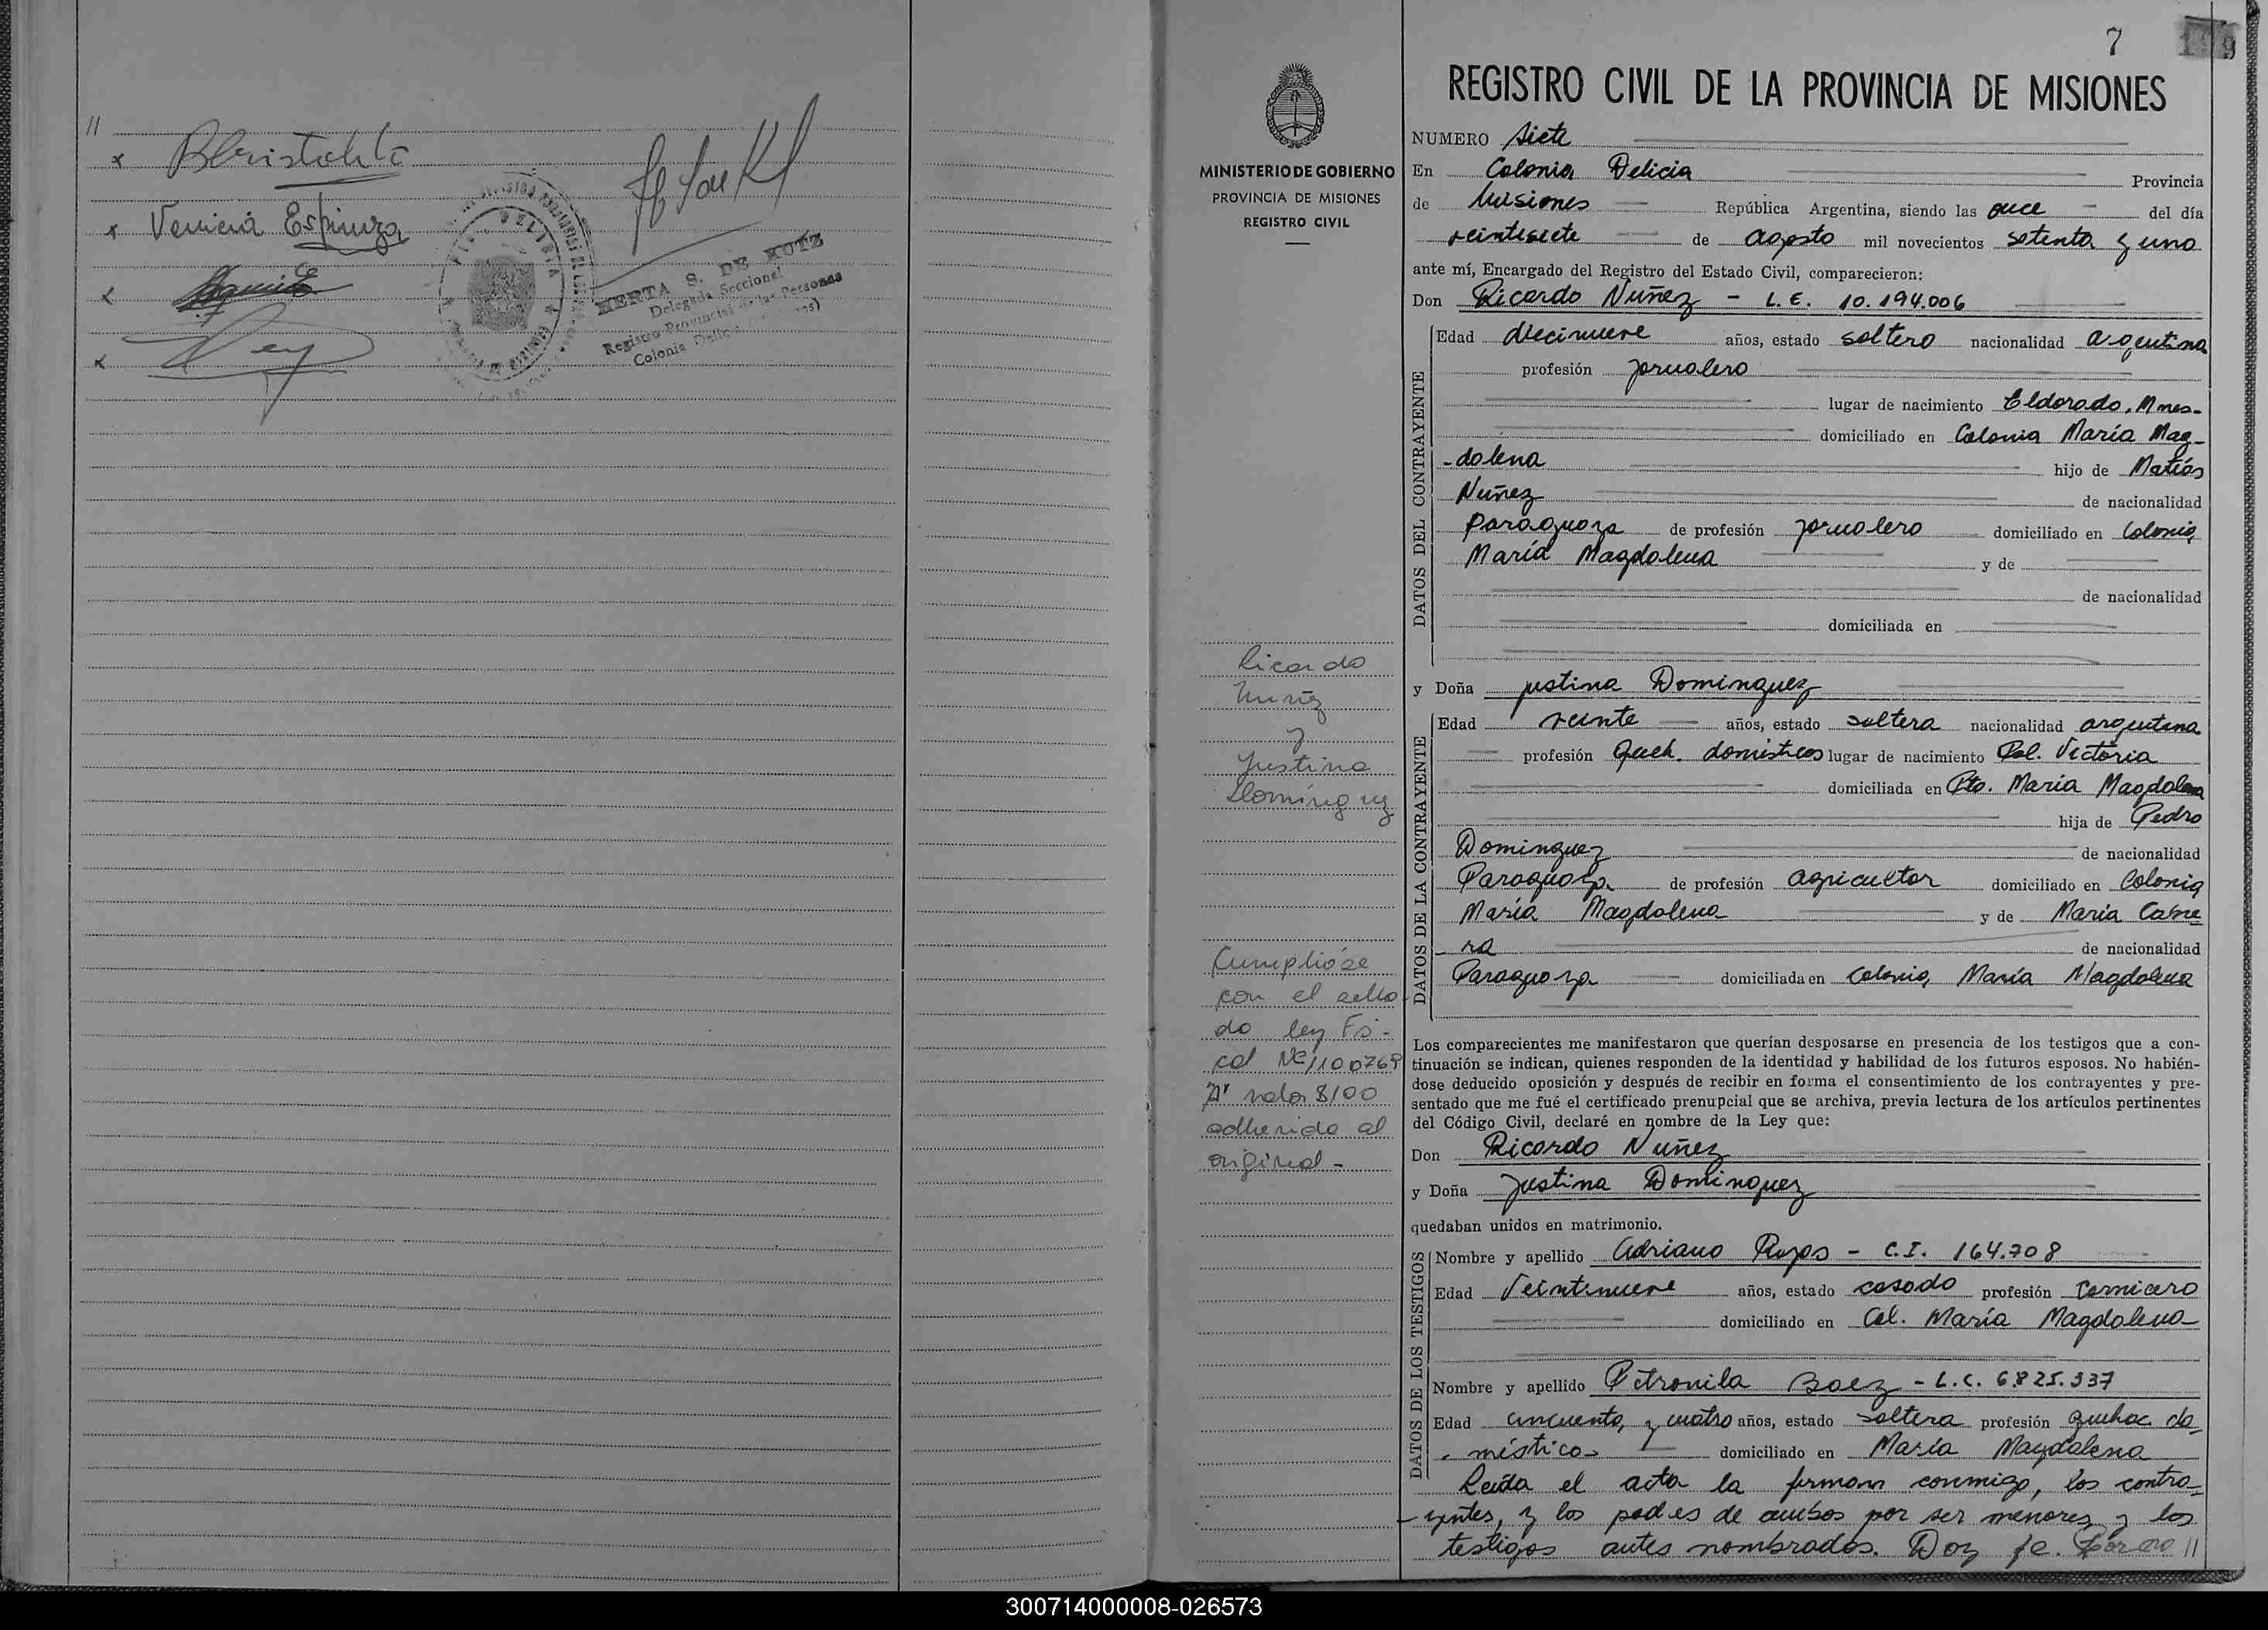 //
x
x Venicia Espinoza
x
x
HERTA S. DE KOTZ
Delegada Seccional
Registro Provincial de las Personas
Colonia Delicia
7
REGISTRO CIVIL DE LA PROVINCIA DE MISIONES
MINISTERIO DE GOBIERNO
PROVINCIA DE MISIONES
REGISTRO CIVIL
NUMERO Siete
En Colonia Delicia Provincia
de Misiones República Argentina, siendo las once del día
veintisiete de agosto mil novecientos setenta y uno
ante mí, Encargado del Registro del Estado Civil, comparecieron:
Don Ricardo Nuñez - L.E. 10.194.006
DATOS DEL CONTRAYENTE
Edad diecinueve años, estado soltero nacionalidad argentina
profesión jornalero
lugar de nacimiento Eldorado, Mnes-
domiciliado en Colonia María Mag-
-dalena hijo de Matías
Nuñez de nacionalidad
Paraguaya de profesión jornalero domiciliado en Colonia
María Magdalena y de
de nacionalidad
domiciliada en
y Doña Justina Dominguez
DATOS DE LA CONTRAYENTE
Edad veinte años, estado soltera nacionalidad argentina
profesión Queh. domésticos lugar de nacimiento Col. Victoria
domiciliada en Pto. María Magdalena
hija de Pedro
Dominguez de nacionalidad
Paraguaya de profesión agricultor domiciliado en Colonia
María Magdalena y de María Cabre
-ra de nacionalidad
Paraguaya domiciliada en Colonia María Magdalena
Los comparecientes me manifestaron que querían desposarse en presencia de los testigos que a con-
tinuación se indican, quienes responden de la identidad y habilidad de los futuros esposos. No habién-
dose deducido oposición y después de recibir en forma el consentimiento de los contrayentes y pre-
sentado que me fué el certificado prenupcial que se archiva, previa lectura de los artículos pertinentes
del Código Civil, declaré en nombre de la Ley que:
Don Ricardo Nuñez
y Doña Justina Dominguez
quedaban unidos en matrimonio.
DATOS DE LOS TESTIGOS
Nombre y apellido Adriano Reyes - C.I. 164.708
Edad Veintinueve años, estado casado profesión Carnicero
domiciliado en Col. María Magdalena
Nombre y apellido Petronila Baez - L.C. 6.825.337
Edad cincuenta y cuatro años, estado soltera profesión quehac. do-
méstico- domiciliado en María Magdalena
Leída el acta la firman conmigo, los contra-
-yentes, y los padres de ambos por ser menores y los
testigos antes nombrados. Doy fe. //
Ricardo
Nuñez
y
Justina
Dominguez
Cumplióse
con el sella
do ley Fis-
cal Nº 1100769
"A" valor $100
adherido al
original-
300714000008-026573